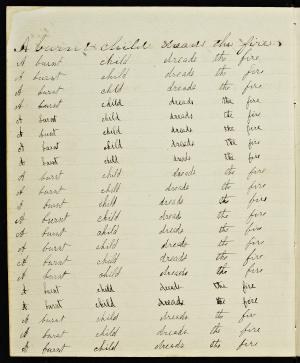 A burnt child dreads the fire.
A burnt child dreads the fire
A burnt child dreads the fire
A burnt child dreads the fire
A burnt child dreads the fire
A burnt child dreads the fire
A burnt child dreads the fire
A burnt child dreads the fire
A burnt child dreads the fire
A burnt child dreads the fire
A burnt child dreads the fire
A burnt child dreads the fire
A burnt child dreads the fire
A burnt child dreads the fire
A burnt child dreads the fire
A burnt child dreads the fire
A burnt child dreads the fire
A burnt child dreads the fire
A burnt child dreads the fire
A burnt child dreads the fire
A burnt child dreads the fire
A burnt child dreads the fire